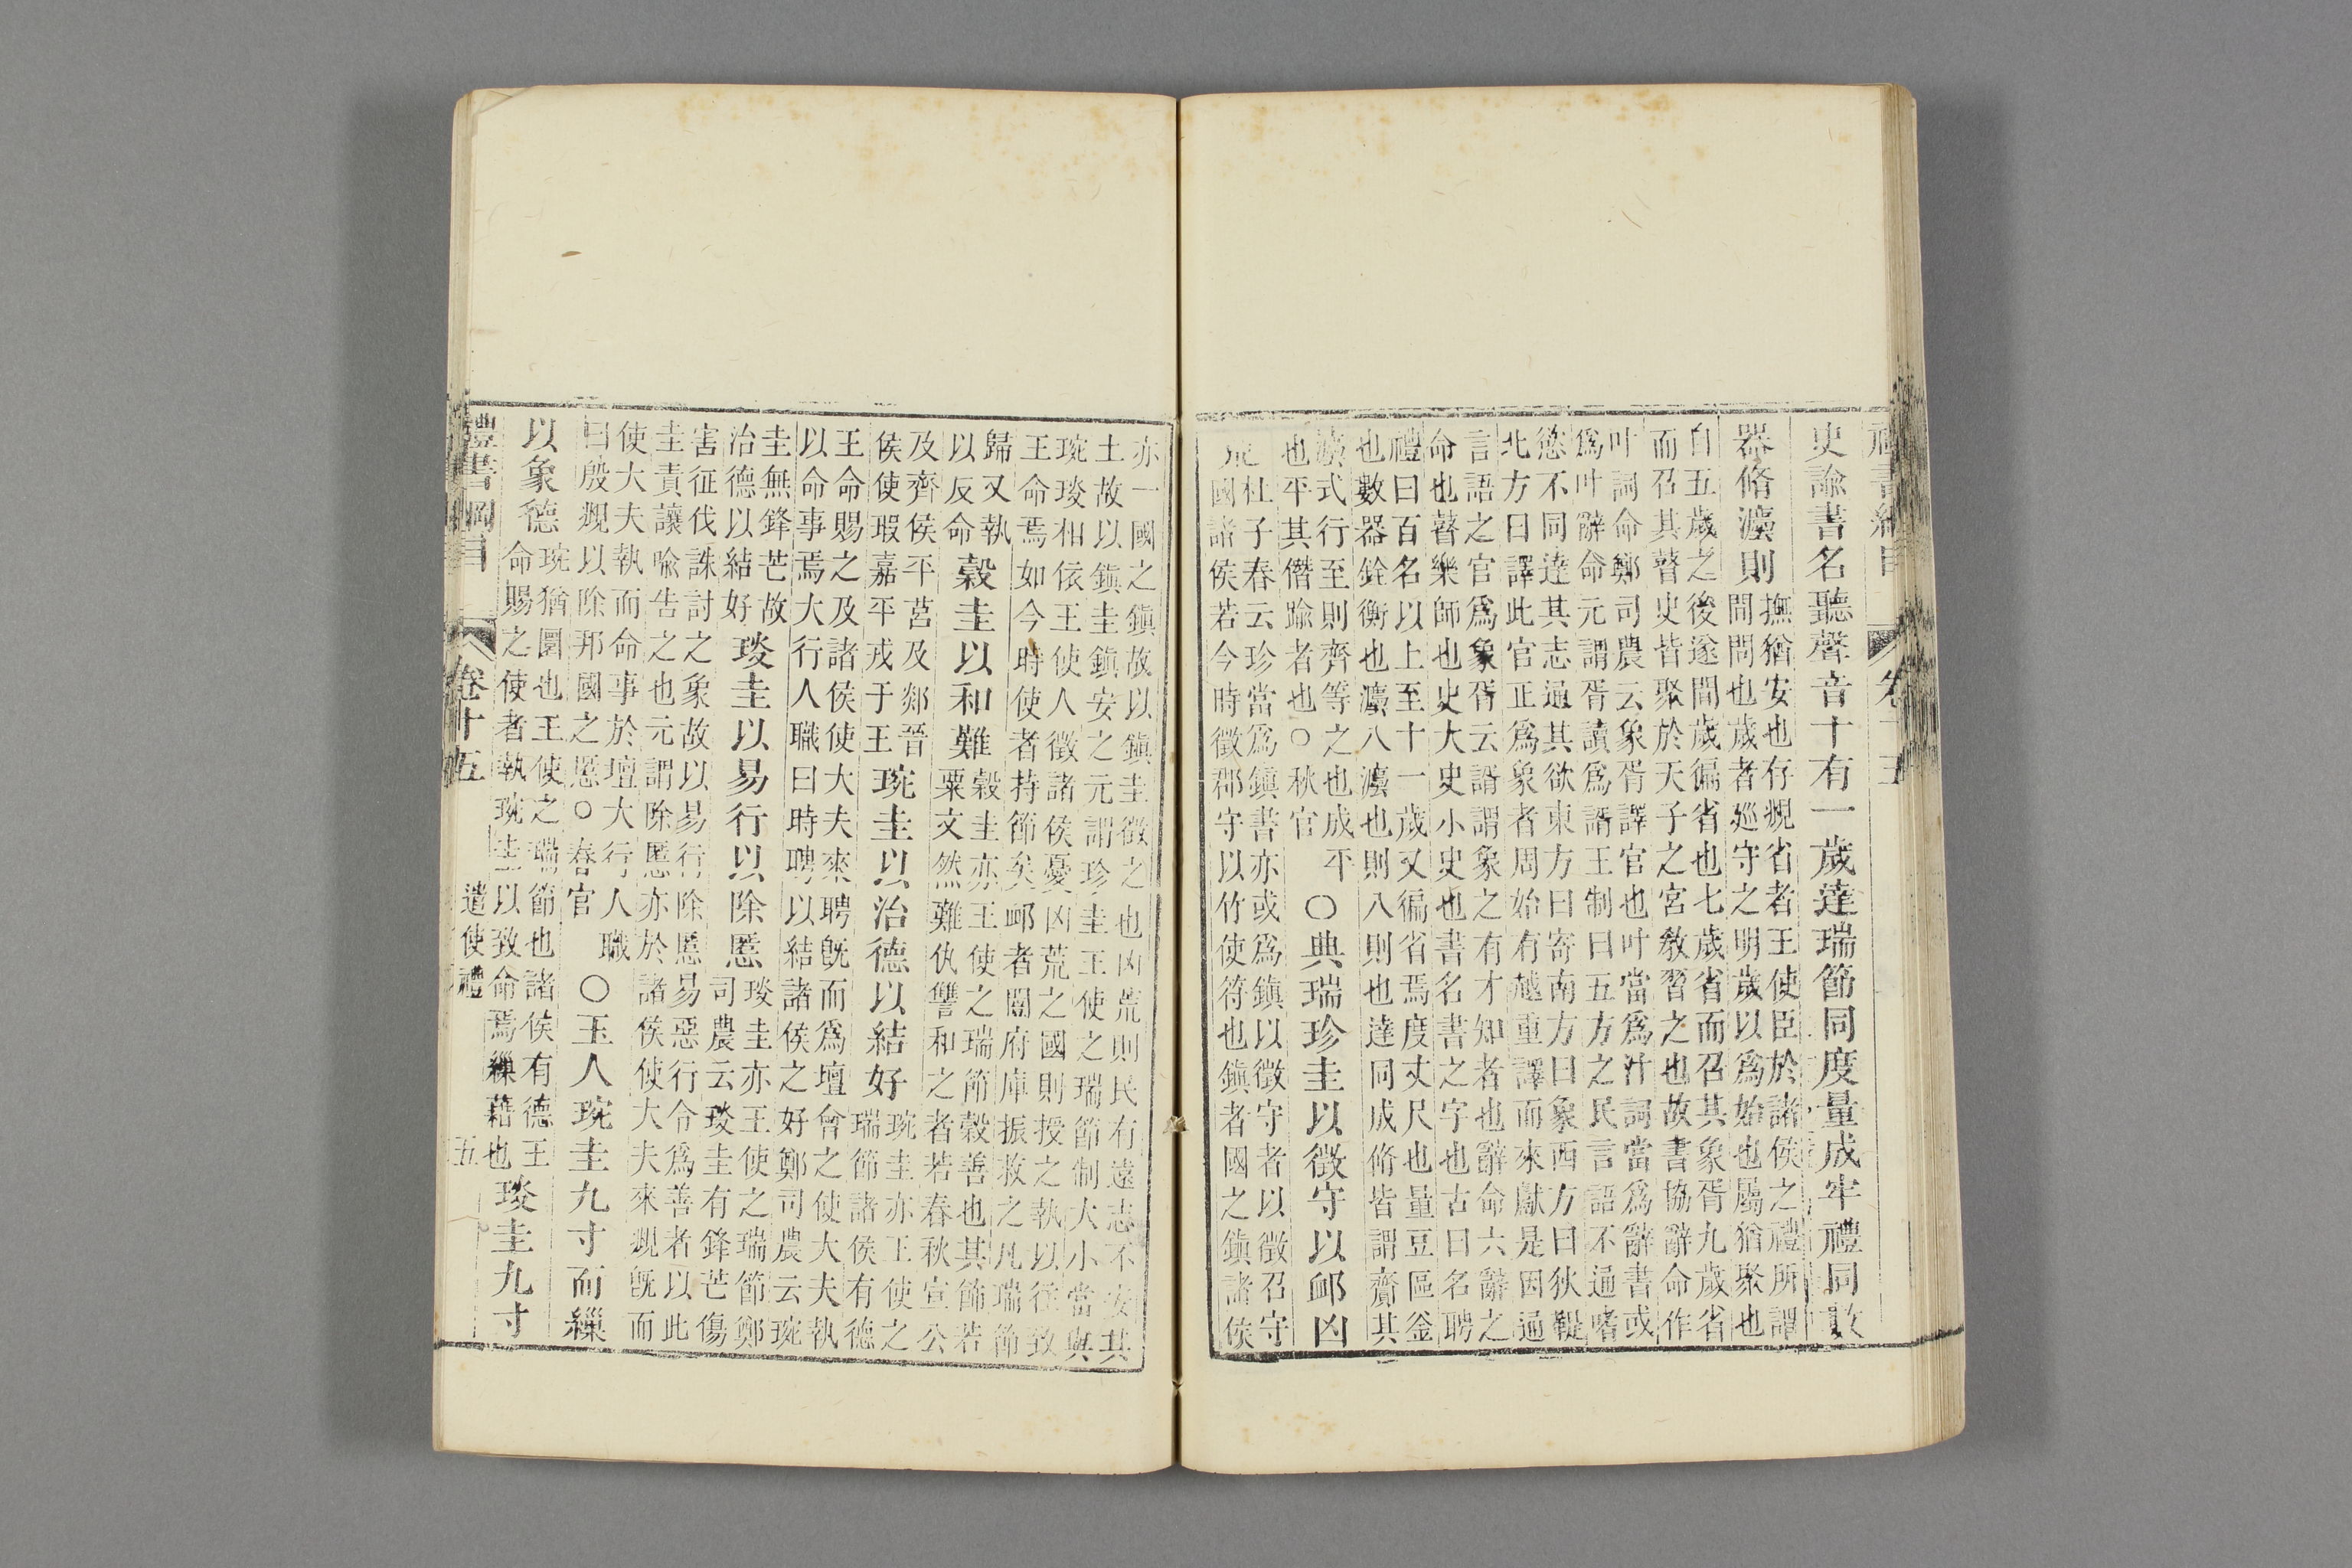 禮書綱目 卷十五
史諭書名聽聲音十有一歲達瑞節同度量成牢禮同數
器脩灋則
撫猶安也存覜省者王使臣於諸侯之禮所謂
間問也歲者廵守之明歲以爲始也屬猶聚也
自五歲之後遂間歲徧省也七歲省而召其象胥九歲省
而召其瞽史皆聚於天子之宮敎習之也故書協辭命作
叶詞命鄭司農云象胥譯官也叶當爲汁詞當爲辭書或
爲叶辭命元謂胥讀爲諝王制曰五方之民言語不通嗜
慾不同逹其志通其欲東方曰寄南方曰象西方曰狄鞮
北方曰譯此官正爲象者周始有越重譯而來獻是因通
言語之官爲象胥云諝謂象之有才知者也辭命六辭之
命也瞽樂師也史大史小史也書名書之字也古曰名聘
禮曰百名以上至十一歲又徧省焉度丈尺也量豆區釜
也數器銓衡也灋八灋也則八則也達同成脩皆謂齎其
灋式行至則齊等之也成平
也平其僭踰者也○秋官
○典瑞珍圭以徵守以䘏凶
荒
杜子春云珍當爲鎭書亦或爲鎭以徵守者以徵召守
國諸侯若今時徵郡守以竹使符也鎭者國之鎭諸侯
亦一國之鎭故以鎭圭徵之也凶荒則民有遠志不安其
土故以鎭圭鎭安之元謂珍圭王使之瑞節制大小當與
琬琰相依王使人徵諸侯憂凶荒之國則授之執以往致
王命焉如今時使者持節矣䘏者闓府庫振救之凡瑞節
歸又執
以反命
穀圭以和難
穀圭亦王使之瑞節穀善也其飾若
粟文然難仇讐和之者若春秋宣公
及齊侯平莒及郯晉
侯使瑕嘉平戎于王
琬圭以治德以結好
琬圭亦王使之
瑞節諸侯有德
王命賜之及諸侯使大夫來聘旣而爲壇會之使大夫執
以命事焉大行人職曰時聘以結諸侯之好鄭司農云琬
圭無鋒芒故
治德以結好
琰圭以易行以除慝
琰圭亦王使之瑞節鄭
司農云琰圭有鋒芒傷
害征伐誅討之象故以易行除慝易惡行令爲善者以此
圭責讓喻告之也元謂除慝亦於諸侯使大夫來覜旣而
使大夫執而命事於壇大行人職
曰殷覜以除邦國之慝○春官
○玉人琬圭九寸而繅
以象德
琬猶圜也王使之瑞節也諸侯有德王
命賜之使者執琬圭以致命焉繅藉也
琰圭九寸
禮書綱目 卷十五 遣使禮 五